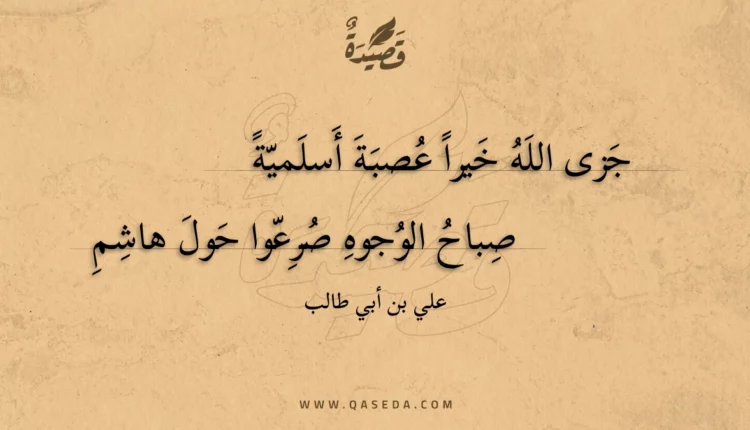 قَصِيدَةٌ
جَزى اللَهُ خَيراً عُصبَةَ أَسلَميّةً
صِباحُ الوُجوهِ صُرِعّوا حَولَ هاشِمِ
علي بن أبي طالب
WWW.QASEDA.COM